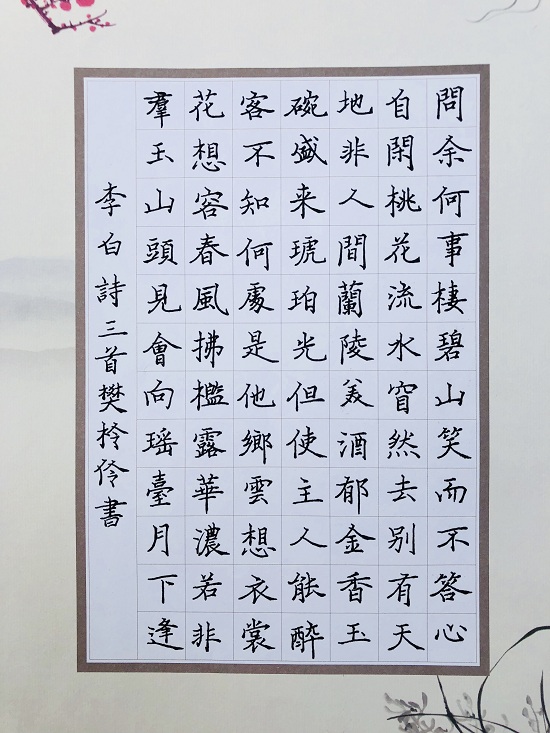 問余何事棲碧山笑而不答心
自閑桃花流水窅然去别有天
地非人間蘭陵美酒郁金香玉
碗盛来琥珀光但使主人能醉
客不知何處是他鄉雲想衣裳
花想容春風拂檻露華濃若非
羣玉山頭見會向瑶臺月下逢
李白詩三首樊柃伶書